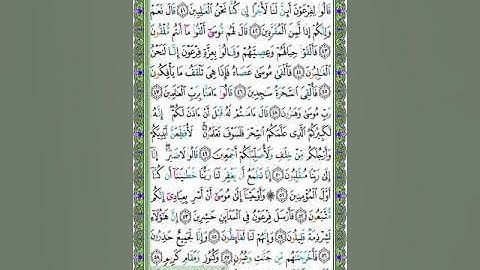 قَالُوا۟ لِفِرْعَوْنَ أَئِنَّ لَنَا لَأَجْرًا إِن كُنَّا نَحْنُ ٱلْغَـٰلِبِينَ ﴿٤١﴾ قَالَ نَعَمْ
وَإِنَّكُمْ إِذًا لَّمِنَ ٱلْمُقَرَّبِينَ ﴿٤٢﴾ قَالَ لَهُم مُّوسَىٰٓ أَلْقُوا۟ مَآ أَنتُم مُّلْقُونَ
﴿٤٣﴾ فَأَلْقَوْا۟ حِبَالَهُمْ وَعِصِيَّهُمْ وَقَالُوا۟ بِعِزَّةِ فِرْعَوْنَ إِنَّا لَنَحْنُ
ٱلْغَـٰلِبُونَ ﴿٤٤﴾ فَأَلْقَىٰ مُوسَىٰ عَصَاهُ فَإِذَا هِىَ تَلْقَفُ مَا يَأْفِكُونَ
﴿٤٥﴾ فَأُلْقِىَ ٱلسَّحَرَةُ سَـٰجِدِينَ ﴿٤٦﴾ قَالُوٓا۟ ءَامَنَّا بِرَبِّ ٱلْعَـٰلَمِينَ ﴿٤٧﴾
رَبِّ مُوسَىٰ وَهَـٰرُونَ ﴿٤٨﴾ قَالَ ءَامَنتُمْ لَهُۥ قَبْلَ أَنْ ءَاذَنَ لَكُمْ ۖ إِنَّهُۥ
لَكَبِيرُكُمُ ٱلَّذِى عَلَّمَكُمُ ٱلسِّحْرَ فَلَسَوْفَ تَعْلَمُونَ ۚ لَأُقَطِّعَنَّ أَيْدِيَكُمْ
وَأَرْجُلَكُم مِّنْ خِلَـٰفٍ وَلَأُصَلِّبَنَّكُمْ أَجْمَعِينَ ﴿٤٩﴾ قَالُوا۟ لَا ضَيْرَ ۖ إِنَّآ
إِلَىٰ رَبِّنَا مُنقَلِبُونَ ﴿٥٠﴾ إِنَّا نَطْمَعُ أَن يَغْفِرَ لَنَا رَبُّنَا خَطَـٰيَـٰنَآ أَن كُنَّآ
أَوَّلَ ٱلْمُؤْمِنِينَ ﴿٥١﴾ ۞ وَأَوْحَيْنَآ إِلَىٰ مُوسَىٰٓ أَنْ أَسْرِ بِعِبَادِىٓ إِنَّكُم
مُّتَّبَعُونَ ﴿٥٢﴾ فَأَرْسَلَ فِرْعَوْنُ فِى ٱلْمَدَآئِنِ حَـٰشِرِينَ ﴿٥٣﴾ إِنَّ هَـٰٓؤُلَآءِ
لَشِرْذِمَةٌ قَلِيلُونَ ﴿٥٤﴾ وَإِنَّهُمْ لَنَا لَغَآئِظُونَ ﴿٥٥﴾ وَإِنَّا لَجَمِيعٌ حَـٰذِرُونَ
﴿٥٦﴾ فَأَخْرَجْنَـٰهُم مِّن جَنَّـٰتٍ وَعُيُونٍ ﴿٥٧﴾ وَكُنُوزٍ وَمَقَامٍ كَرِيمٍ ﴿٥٨﴾